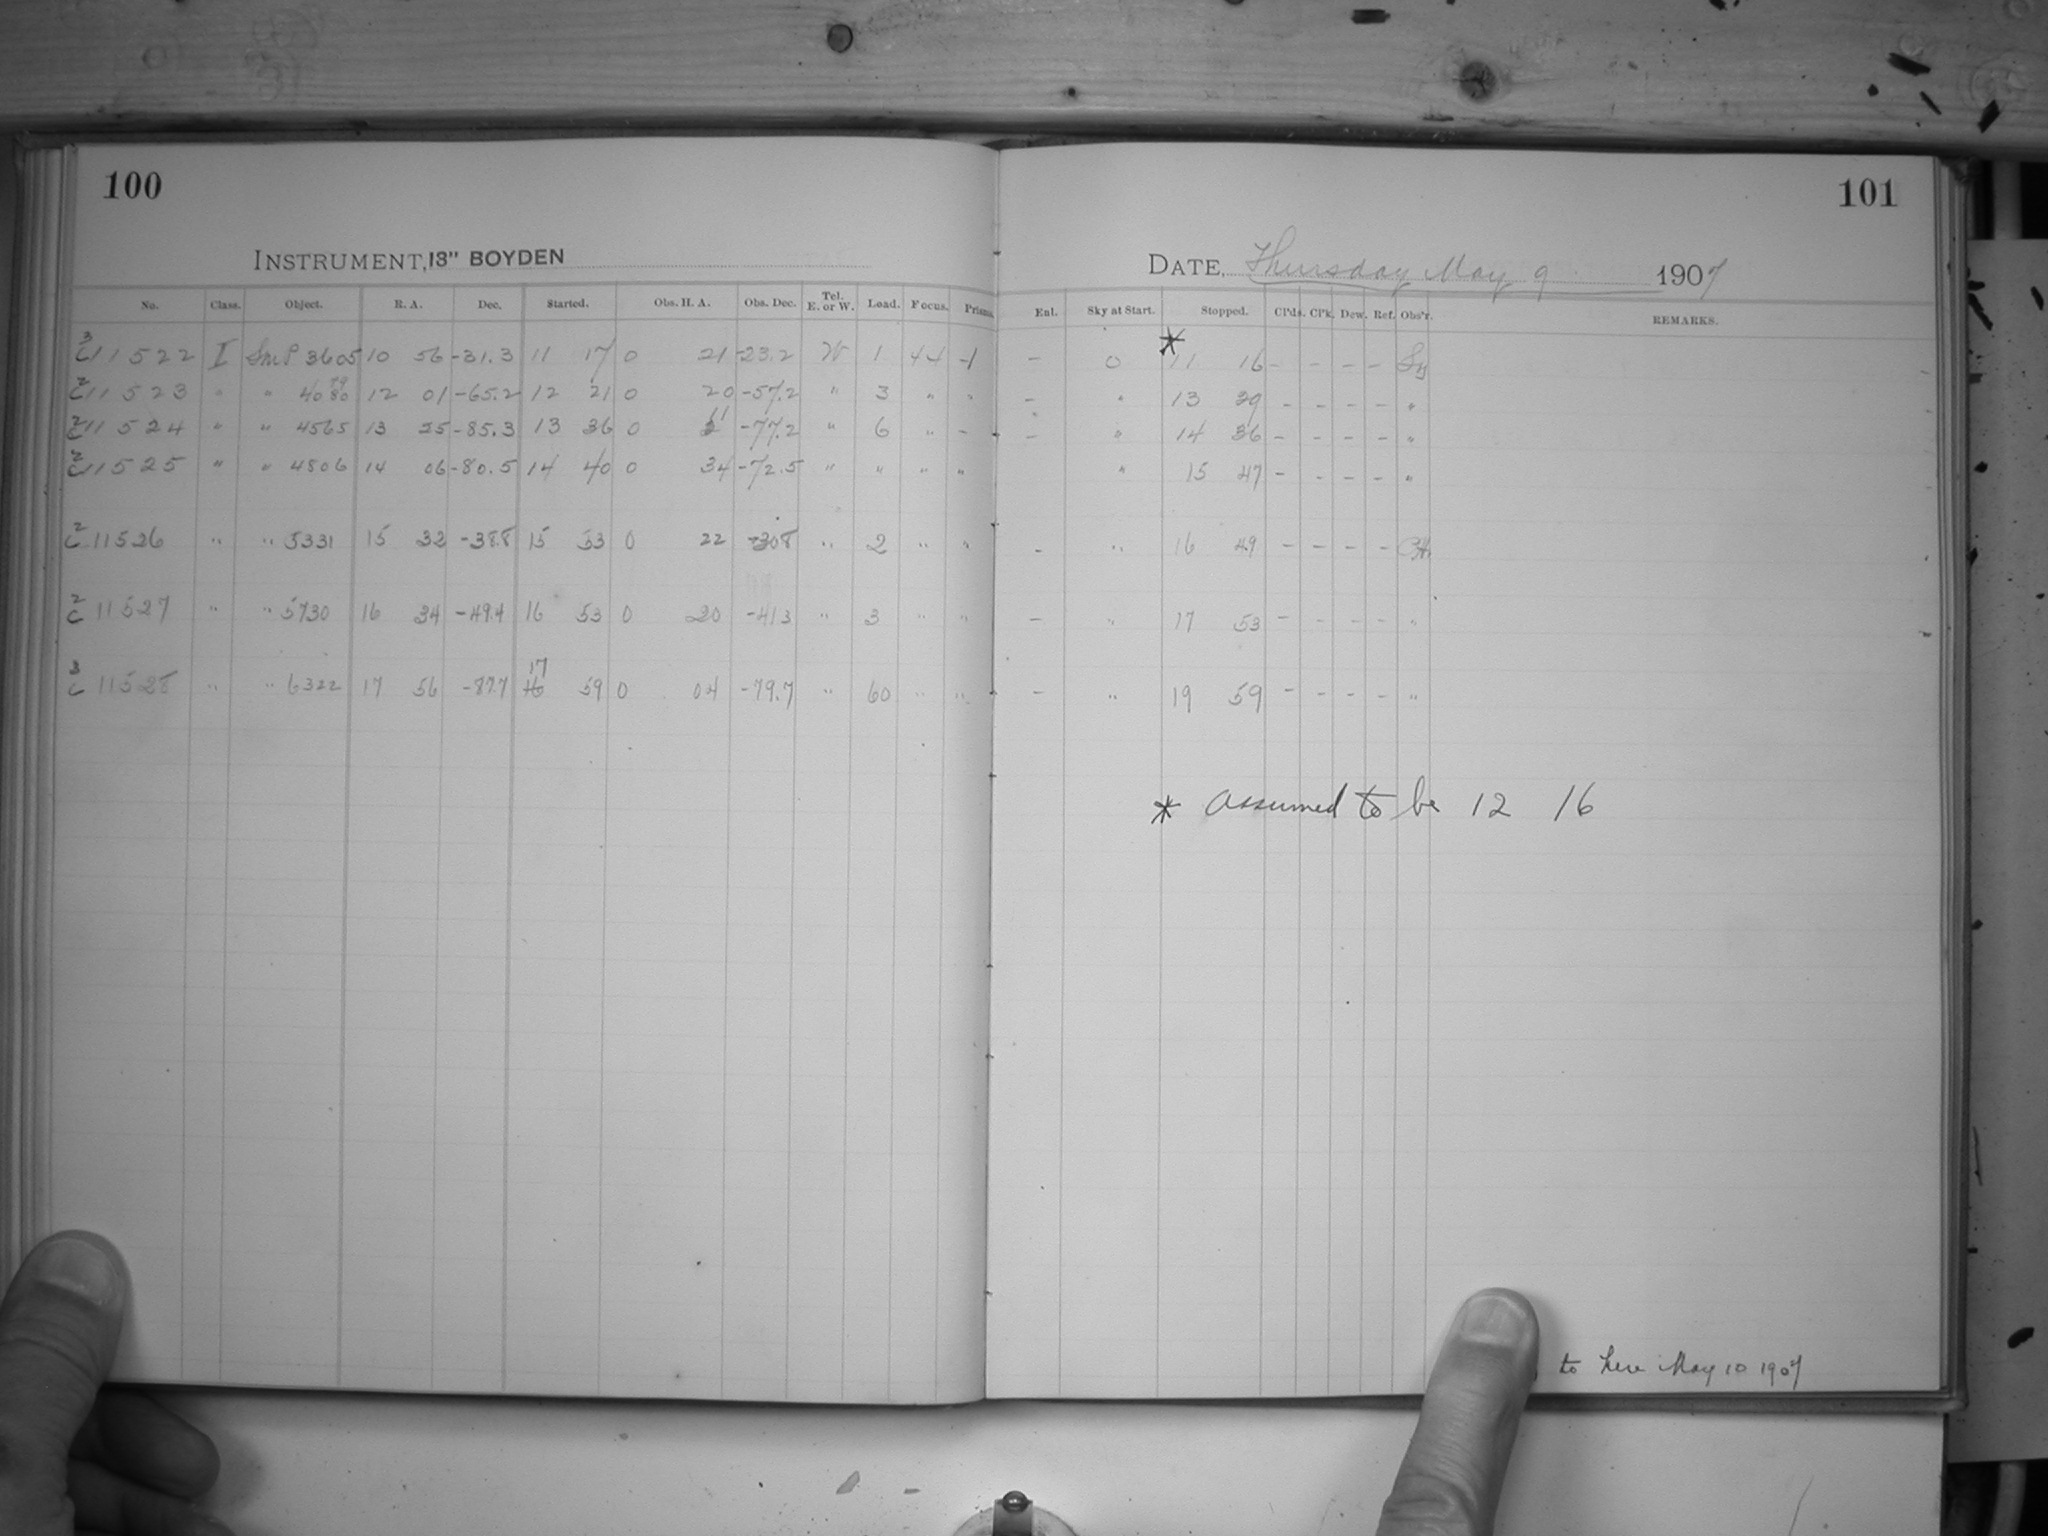 100
101
INSTRUMENT, 13" BOYDEN
DATE, Thursday May 9 1907
No. Class. Object. R. A. Dec. Started. Obs. H. A. Obs. Dec. Tel. E. or W. Load. Focus. Prisms. Enl. Sky at Start. Stopped. Cl'ds. Cl'k. Dew. Ref. Obs'r. REMARKS.
3 C 11522 I S.M.P. 3605 10 56 -31.3 11 17 0 21 -23.2 W 1 44 -1 - 0 * 11 16 - - - -
2 C 11523 " " 4080 12 01 -65.2 12 21 0 20 -57.2 " 3 " " - " 13 29 - - - - "
2 C 11524 " " 4565 13 25 -85.3 13 36 0 11 -77.2 " 6 " - - " 14 36 - - - - "
2 C 11525 " " 4806 14 06 -80.5 14 40 0 34 -72.5 " " " " " 15 47 - - - - "
2 C 11526 " " 5331 15 32 -38.8 15 53 0 22 -30.8 " 2 " " - " 16 49 - - - -
2 C 11527 " " 5730 16 34 -49.4 16 53 0 20 -41.3 " 3 " " - " 17 53 - - - - "
3 C 11528 " " 6322 17 56 -87.7 17 59 0 04 -79.7 " 60 " " - " 19 59 - - - - "
* assumed to be 12 16
to here May 10 1907